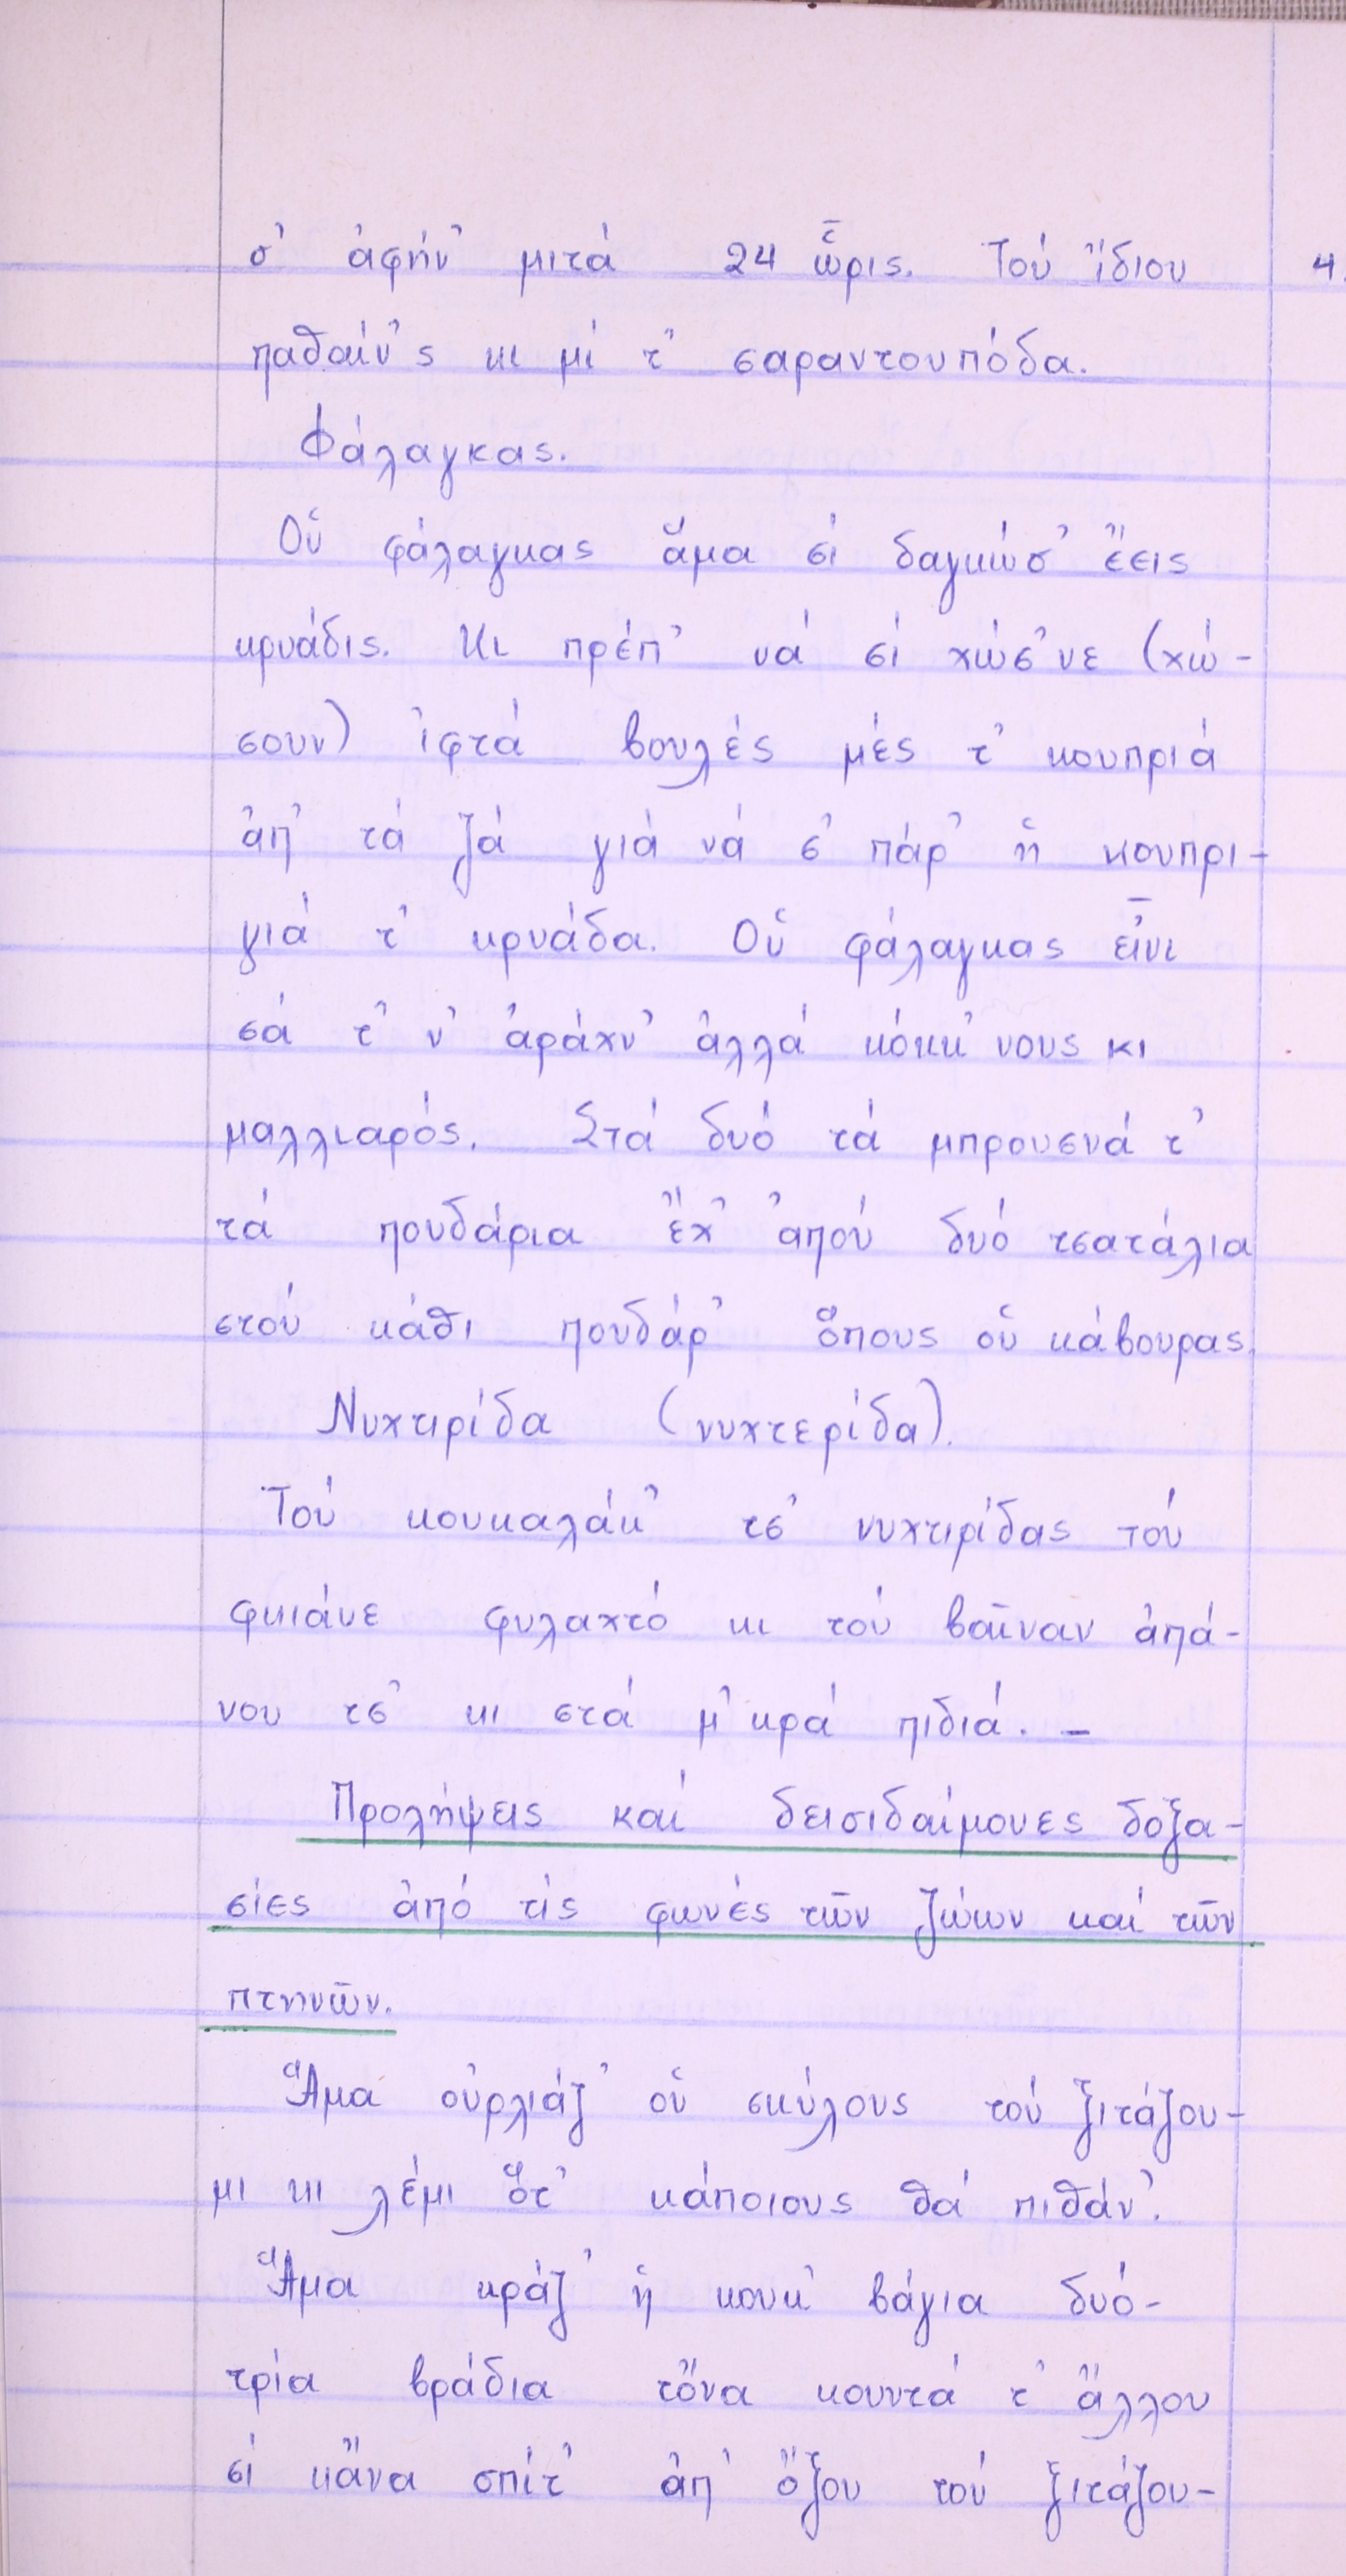 σ' ἀφήν' μιτά 24 ὧρις. Τού ἴδιου 4.
παθαίν'ς κι μί τ' σαραντουπόδα.
Φάλαγκας.
Οὑ φάλαγκας ἅμα σί δαγκώσ' ἔεις
κρυάδις. Κι πρέπ' νά σί χώσ'νε (χώ-
σουν) ἰφτά βουλές μές τ' κουπριά
ἀπ' τά ζά γιά νά σ' πάρ' ἡ κουπρι-
γιά τ' κρυάδα. Οὑ φάλαγκας εἶνι
σά τ' ν' ἀράχν' ἀλλά κόκκ'νους κι
μαλλιαρός. Στά δυό τά μπρουσνά τ'
τά πουδάρια ἔχ' ἀπού δυό τσατάλια
στού κάθι πουδάρ' ὅπους οὑ κάβουρας.
Νυχτιρίδα (νυχτερίδα).
Τού κουκαλάκ' τσ' νυχτιρίδας τού
φκιάνε φυλαχτό κι τού βαῖναν ἀπά-
νου τσ' κι στά μ'κρά πιδιά. -
Προλήψεις καί δεισιδαίμονες δοξα-
σίες ἀπό τίς φωνές τῶν ζώων καί τῶν
πτηνῶν.
Ἅμα οὐρλιάζ' οὑ σκύλους τού ξιτάζου-
μι κι λέμι ὅτ' κάποιους θά πιθάν'.
Ἅμα κράζ' ἡ κουκ'βάγια δυό-
τρία βράδια τὄνα κουντά τ' ἄλλου
σί κἄνα σπίτ' ἀπ' ὄξου τού ξιτάζου-